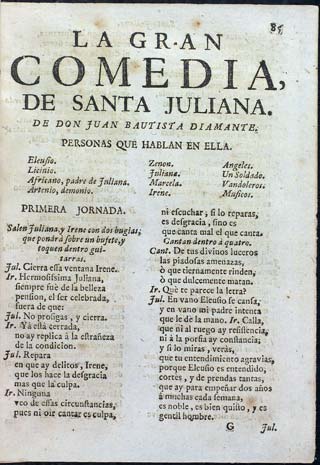 85
LA GRAN
COMEDIA,
DE SANTA JULIANA.
DE DON JUAN BAUTISTA DIAMANTE.
PERSONAS QUE HABLAN EN ELLA.
Eleusio.
Licinio.
Africano, padre de Juliana.
Artenio, demonio.
Zenon.
Juliana.
Marcela.
Irene.
Angeles.
Un Soldado.
Vandoleros.
Musicos.
PRIMERA JORNADA.
Salen Juliana, y Irene con dos bugias,
que pondrà sobre un bufete, y
toquen dentro gui-
tarras.
Jul. Cierra essa ventana Irene.
Ir. Hermosissima Juliana,
siempre fuè de la belleza
pension, el ser celebrada,
fuera de que:
Jul. No prosigas, y cierra.
Ir. Yà està cerrada,
no ay replica à la estrañeza
de la condicion.
Jul. Repara
en que ay delitos, Irene,
que los hace la desgracia
mas que la culpa.
Ir. Ninguna
veo en essas circunstancias,
pues ni oir cantar es culpa,
ni escuchar; si lo reparas,
es desgracia, sino es
que canta mal el que canta.
Cantan dentro à quatro.
Cant. De tus divinos luceros
las piadosas amenazas,
ò que tiernamente rinden,
ò que dulcemente matan.
Ir. Què te parece la letra?
Jul. En vano Eleusio se cansa,
y en vano mi padre intenta
que le dè la mano. Ir. Calla,
que ni al ruego ay resistencia,
ni à la porfia ay constancia;
y si lo miras, veràs,
que tu entendimiento agravias,
porque Eleusio es entendido,
cortès, y de prendas tantas,
que ay para empeñar dos años
à muchas cada semana,
es noble, es bien quisto, y es
gentil hombre.
G
Jul.